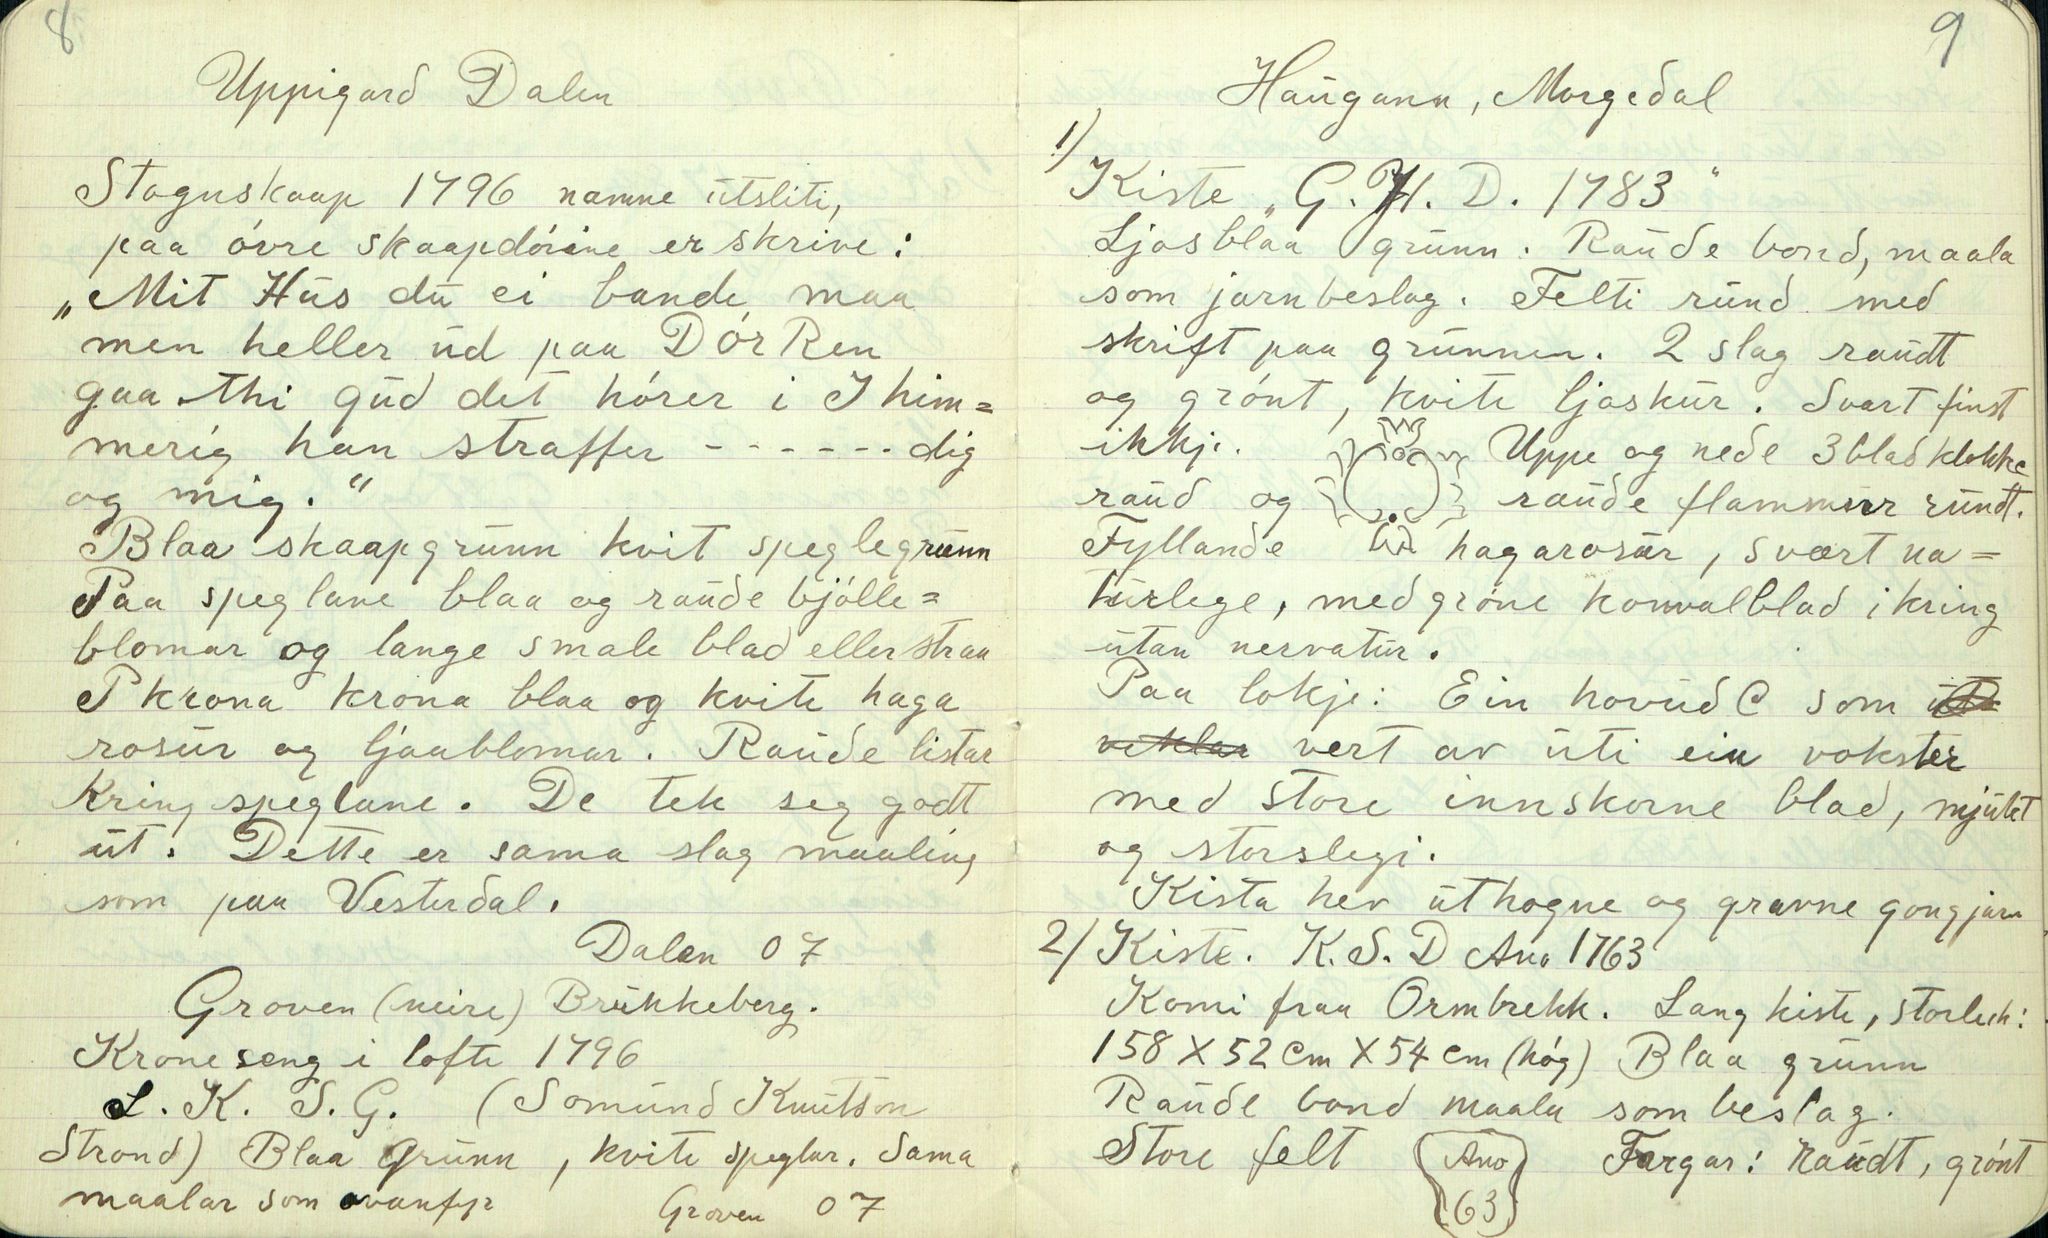 8
Uppigard Dalen
Stoguskaap 1796 namne utsliti,
paa óvre skaapdórine er skrive:
„Mit Hus du ei bande maa
men heller ud paa DórRen
gaa thi gud det hórer i I him=
merig han straffer - - - - - - dig
og mig.“
Blaa skaapgrunn kvit speglegrunn
Paa speglane blaa og raude bjólle=
blomar og lange smale blad eller straa
P krona krona blaa og kvite haga
rosur og ljaablomar. Raude listar
kring speglane. De tek seg godt
ut. Dette er sama slag maaling
som paa Vesterdal.
Dalen 07
Groven (neire) Brukkeberg.
Kroneseng i lofte 1796
L. K. S. G. (Somund Knutson
Strond) Blaa grunn, kvite speglar. Sama
maalar som ovanfyr
Groven 07
9
Haugann, Morgedal
1)
Kiste „G. H. D. 1783“
Ljosblaa grunn. Raude bond, maala
som jarnbeslag. Felti rund med
skrift paa grunnen. 2 slag raudt
og grónt, kvite ljoskur. Svart finst
ikkje. Uppe og nede 3 blad klokke
raud og raude flammurr rundt.
Fyllande hagarosur, svært na=
turlege, med gróne konvalblad ikring
utan nervatur.
Paa lokje: Ein hovud C som ut
veklar vert av uti ein vokster
med store innskorne blad, mjukt
og storslegi.
Kista hev uthogne og gravne gongjarn
2) Kiste. K. S. D Ano 1763
Komi fraa Ormbrekk. Lang kiste, storleik:
158 X 52 cm X 54 cm (hóg) Blaa grunn
Raude bond maala som beslag.
Store felt Ano 63 Fargar: raudt, grónt